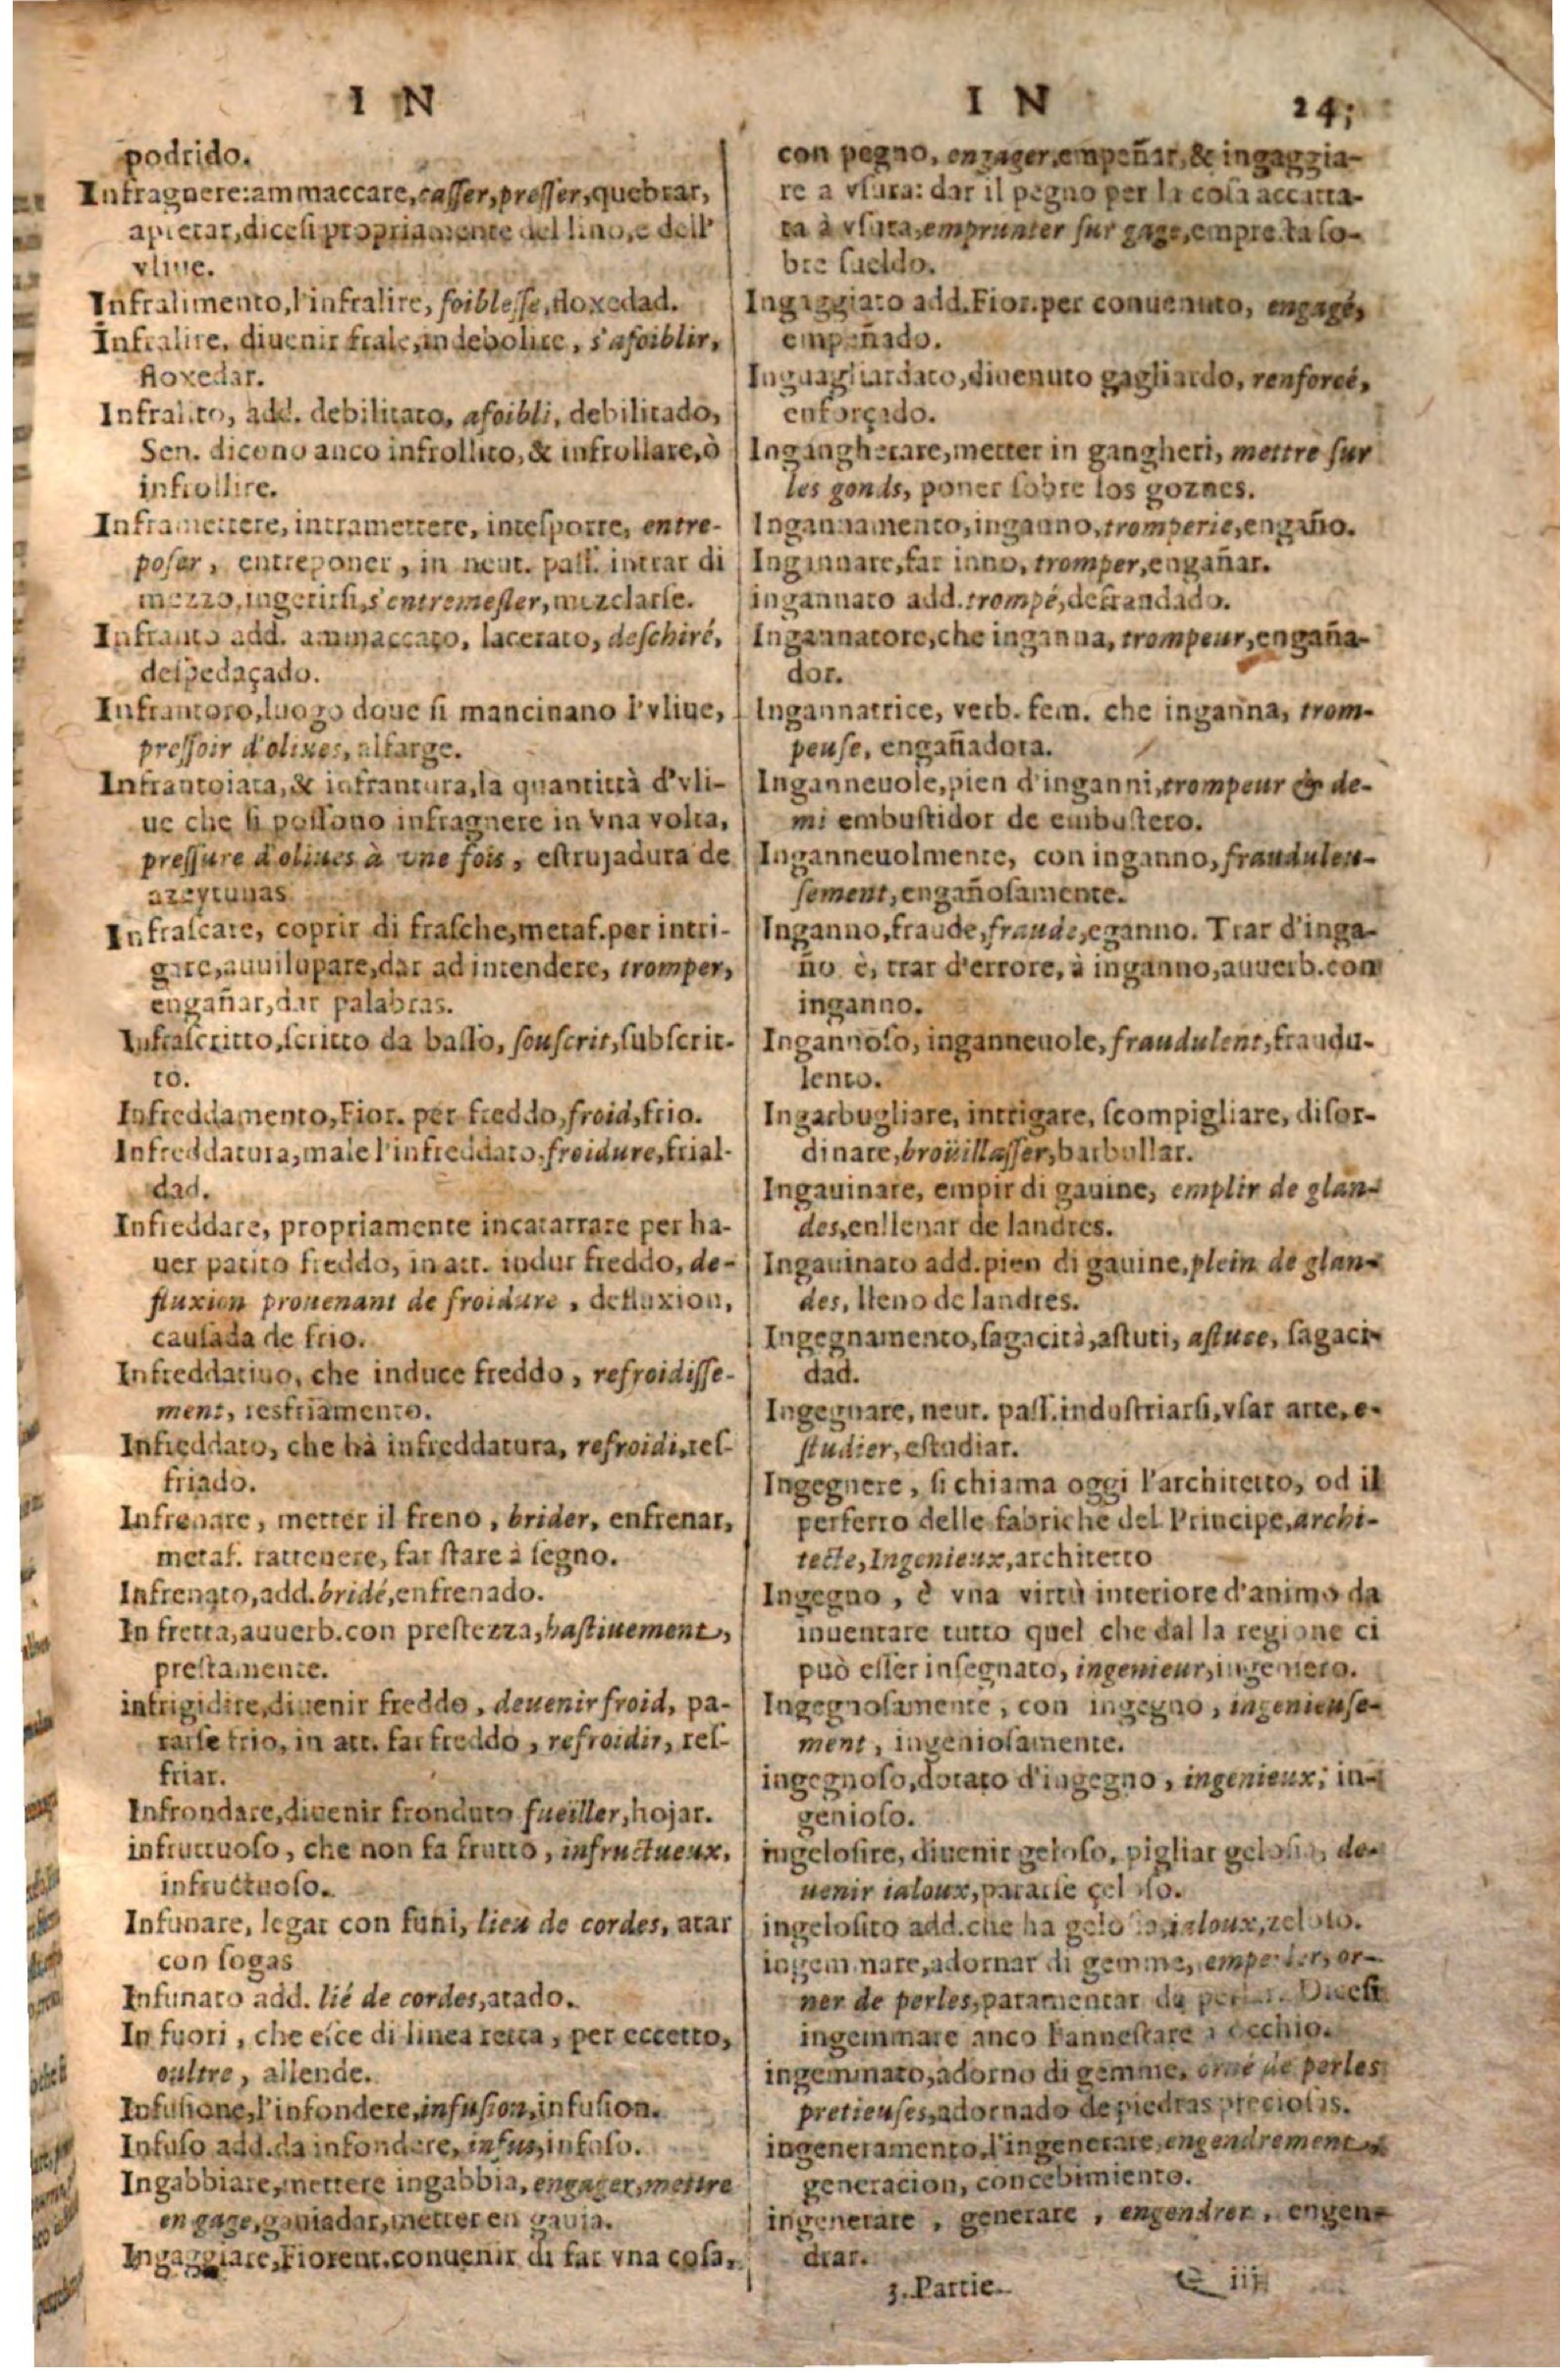 I N
podrido.
Infragnere:ammaccare, casser, presser, quebrar,
apretar, dicesi propriamente del lino, e dell'
vliue.
Infralimento, l'infralire, foiblesse, floxedad.
Infralire, diuenir frale, indebolire, s'afoiblir,
floxedar.
Infralito, add. debilitato, afoibli, debilitado,
Sen. dicono anco infrollito, & infrollare, ò
infrollire.
Inframettere, intramettere, intesporre, entre-
poser, entreponer, in neut. pass. intrar di
mezzo, ingerirsi, s'entremesler, mezclarse.
Infranto add. ammaccato, lacerato, deschiré,
despedaçado.
Infrantoro, luogo doue si mancinano l'vliue,
pressoir d'oliues, alfarge.
Infrantoiata, & infrantura, la quantittà d'vli-
ue che si possono infragnere in vna volta,
pressure d'oliues à vne fois, estrujadura de
azeytunas
Infrascare, coprir di frasche, metaf. per intri-
gare, auuilupare, dar ad intendere, tromper,
engañar, dar palabras.
Infrascritto, scritto da basso, souscrit, subscrit-
to.
Infreddamento, Fior. per freddo, froid, frio.
Infreddatura, male l'infreddato, froidure, frial-
dad.
Infreddare, propriamente incatarrare per ha-
uer patito freddo, in att. indur freddo, de-
fluxion prouenant de froidure, defluxion,
causada de frio.
Infreddatiuo, che induce freddo, refroidisse-
ment, resfriamento.
Infreddato, che hà infreddatura, refroidi, res-
friado.
Infrenare, metter il freno, brider, enfrenar,
metaf. rattenere, far stare à segno.
Infrenato, add. bridé, enfrenado.
In fretta, auuerb. con prestezza, hastiuement,
prestamente.
infrigidire, diuenir freddo, deuenir froid, pa-
rarse frio, in att. far freddo, refroidir, res-
friar.
Infrondare, diuenir fronduto fueiller, hojar.
infruttuoso, che non fa frutto, infructueux,
infructuoso.
Infunare, legar con funi, lieu de cordes, atar
con sogas
Infunato add. lié de cordes, atado.
In fuori, che esce di linea retta, per eccetto,
oultre, allende.
Infusione, l'infondere, infusion, infusion.
Infuso add. da infondere, infus, infuso.
Ingabbiare, mettere ingabbia, engager, mettre
en gage, gauiadar, metter en gauia.
Ingaggiare, Fiorent. conuenir di far vna cosa,
I N 24;
con pegno, engager, empeñar, & ingaggia-
re a vsura: dar il pegno per la cosa accatta-
ta à vsura, emprunter sur gage, empresta so-
bre sueldo.
Ingaggiato add. Fior. per conuenuto, engagé,
empeñado.
Inguagliardato, diuenuto gagliardo, renforcé,
enforçido.
Ingangherare, metter in gangheri, mettre sur
les gonds, poner sobre los goznes.
Ingannamento, inganno, tromperie, engaño.
Ingannare, far inno, tromper, engañar.
ingannato add. trompé, defrandado.
Ingannatore, che inganna, trompeur, engaña-
dor.
Ingannatrice, verb. fem. che inganna, trom-
peuse, engañadora.
Inganneuole, pien d'inganni, trompeur & de-
mi embustidor de embustero.
Inganneuolmente, con inganno, fraudulen-
sement, engañosamente.
Inganno, fraude, fraude, eganno. Trar d'inga-
ño è, trar d'errore, à inganno, auuerb. con
inganno.
Ingannoso, inganneuole, fraudulent, fraudu-
lento.
Ingarbugliare, intrigare, scompigliare, disor-
dinare, broüillasser, barbullar.
Ingauinare, empir di gauine, emplir de glan-
des, enllenar de landres.
Ingauinato add. pien di gauine, plein de glan-
des, lleno de landres.
Ingegnamento, sagacità, astuti, astuce, sagaci-
dad.
Ingegnare, neut. pass. industriarsi, vsar arte, e-
studier, estudiar.
Ingegnere, si chiama oggi l'architetto, od il
perferto delle fabriche del Principe, archi-
tecte, Ingenieux, architetto
Ingegno, è vna virtù interiore d'animo da
inuentare tutto quel che dal la regione ci
può esser insegnato, ingenieur, ingeniero.
Ingegnosamente, con ingegno, ingenieuse-
ment, ingeniosamente.
ingegnoso, dotato d'ingegno, ingenieux, in-
genioso.
ingelosire, diuenir geloso, pigliar gelosia, de-
uenir ialoux, pararse çeloso.
ingelosito add. che ha gelosia, ialoux, zeloso.
ingemmare, adornar di gemme, emperler, or-
ner de perles, paramentar de Dicesi
ingemmare anco l'annestare à occhio.
ingemmato, adorno di gemme, orné de perles
pretieuses, adornado de piedras preciosas.
ingeneramento, l'ingenerare, engendrement,
generacion, concebimiento.
ingenerare, generare, engendrer, engen-
drar.
3. Partie. Q iij